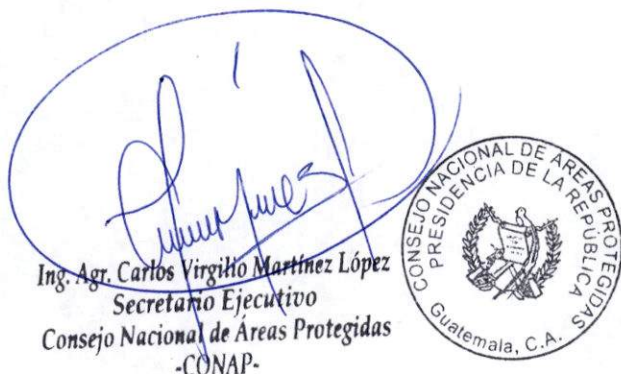 Ing. Agr. Carlos Virgilio Martínez López
Secretario Ejecutivo
Consejo Nacional de Áreas Protegidas
-CONAP-
CONSEJO NACIONAL DE ÁREAS PROTEGIDAS
PRESIDENCIA DE LA REPÚBLICA
Guatemala, C.A.